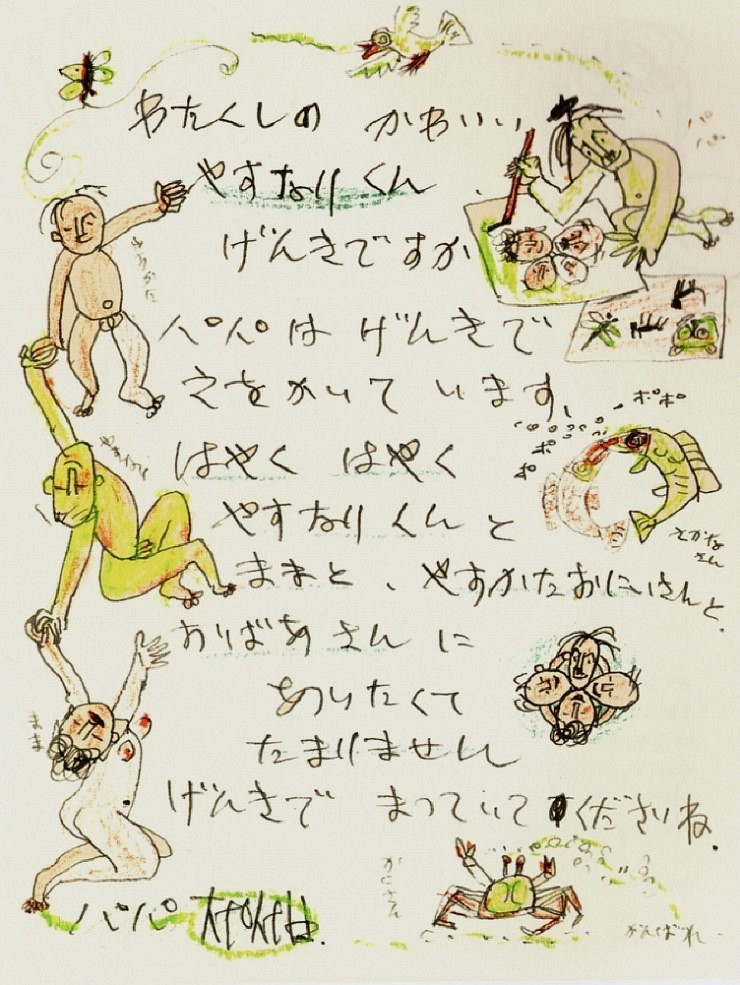 わたくしの かわいい
やすなりくん.
げんきですか
パパは げんきで
えをかいて います、
はやく はやく
やすなりくんと
ままと、やすかたおにいさんと、
おりばあさんに
あいたくて
たまりません
げんきで まっていてくださいね.
パパ
やすかた
まま
ポポ
ポ
ポ
さかな
さん
かにさん
がんばれ